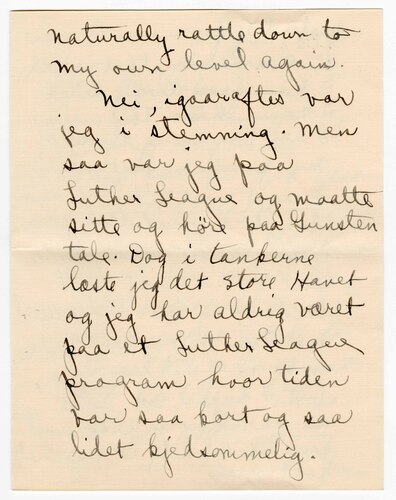 naturally rattle down to
my own level again.
Nei, igaaraftes var
jeg i stemning. Men
saa var jeg paa
Luther League og maatte
sitte og höre paa Gunsten
tale. Dog i tankerne
læste jeg det store Havet
og jeg har aldrig været
paa et Luther League
program hvor tiden
var saa kort og saa
lidet kjedsommelig.